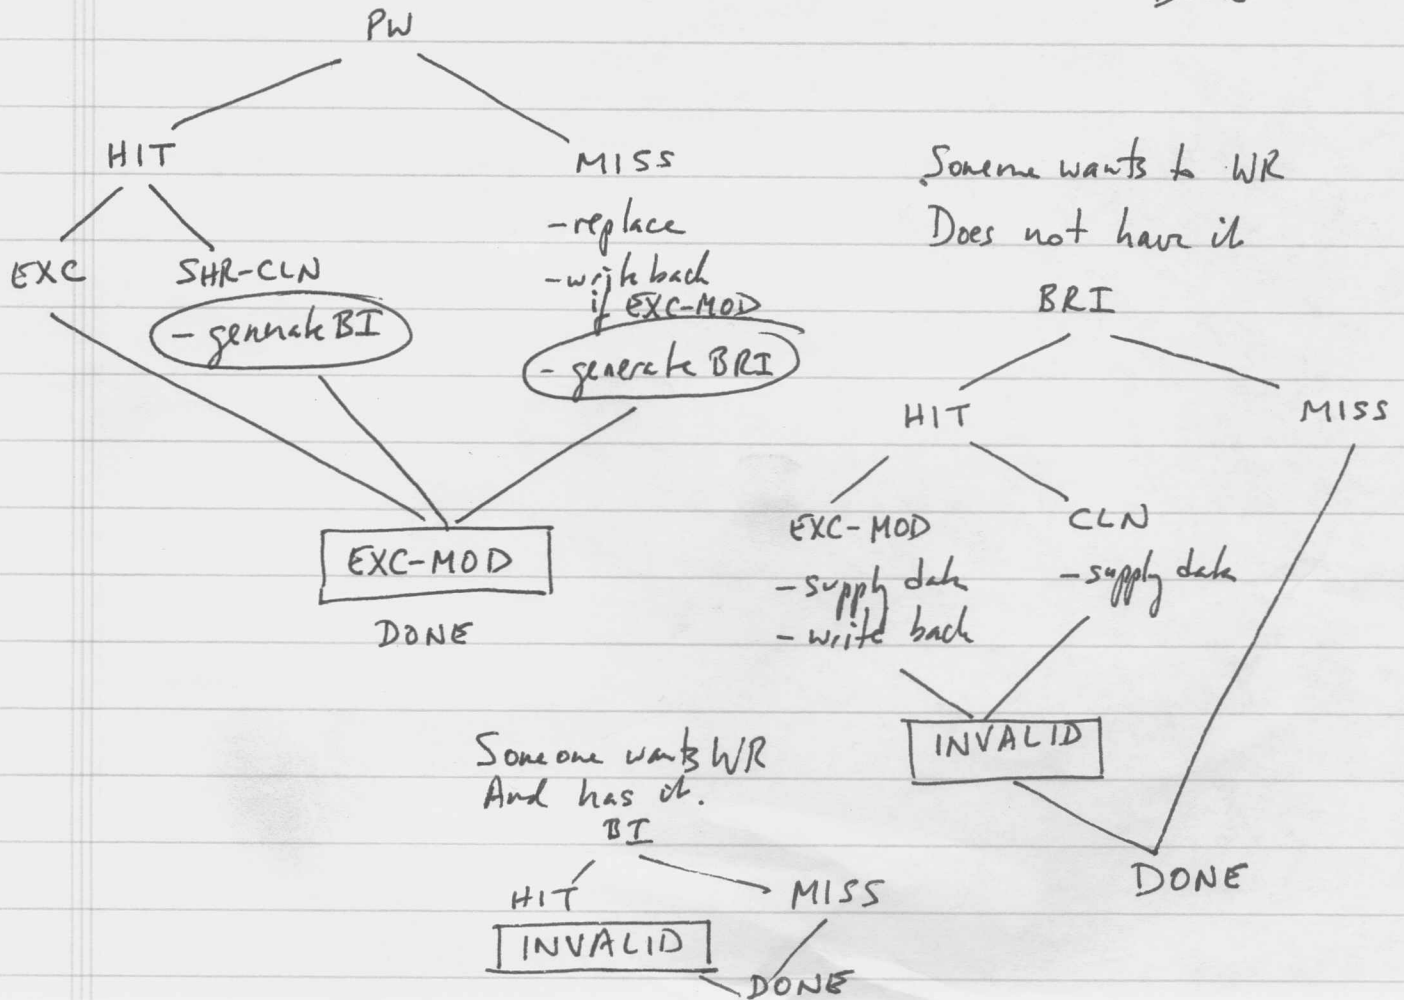 PW
HIT
MISS
EXC
SHR-CLN
- generate BI
- replace
- write back
if EXC-MOD
- generate BRI
EXC-MOD
DONE
Someone wants to WR
Does not have it
BRI
HIT
MISS
EXC-MOD
- supply data
- write back
CLN
- supply data
INVALID
DONE
Someone wants WR
And has it.
BI
HIT
MISS
INVALID
DONE